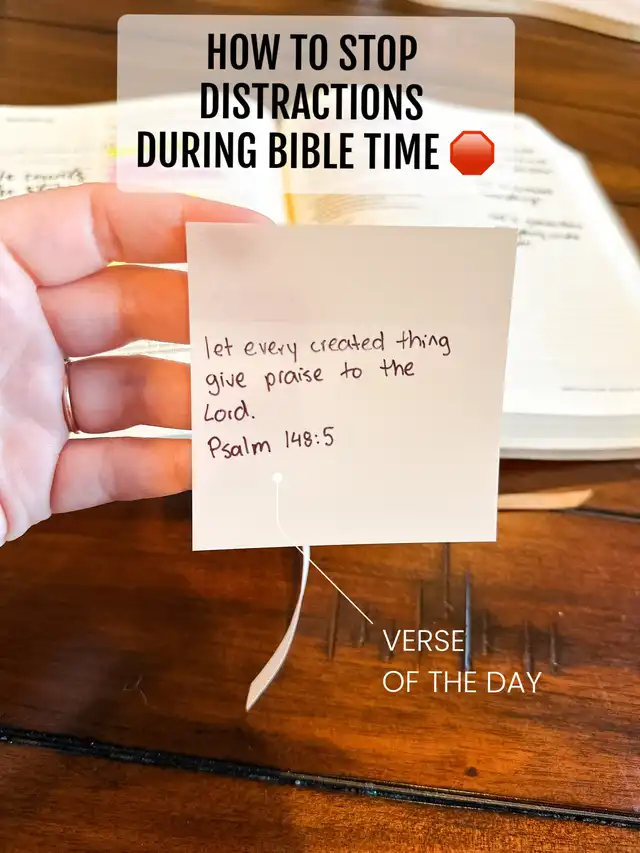 HOW TO STOP
DISTRACTIONS
DURING BIBLE TIME 🛑
let every created thing
give praise to the
Lord.
Psalm 148:5
VERSE
OF THE DAY